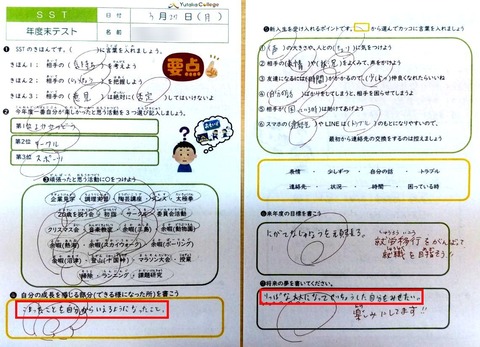 Yutaka College
SST
日付
3月 27日(月)
年度末テスト
① SSTのきほんです。( )に言葉を入れましょう。
きほん1: 相手の(きもち)を考えよう
きほん2: 相手の( )を把握しよう
きほん3: 相手の(意見)は絶対に(否定)してはいけないよ
要点
② 今年度一番自分が楽しかったと思う活動を3つ選び記入しましょう。
第1位
第2位 サークル
第3位 スポーツ
③ 頑張ったと思う活動に○をつけよう
企業見学 調理実習 陶芸講師 ダンス 太極拳
20歳を祝う会 初詣 サークル 委員会活動
クリスマス会 音楽教室 余暇(広島) 余暇
余暇(熱海) 余暇(スカイウォーク) 余暇(ボーリング)
余暇(沼津) 登山(十国峠) マラソン大会 授業
掃除 ランニング 課題研究
④ 自分の成長を感じる部分(できる様になった所)を書こう
こまったことを自分からいえるようになったこと。
⑤ 新入生を受け入れるポイントです。 から選んでカッコに言葉を入れましょう
① (声)の大きさや、人との(きょり)に気をつけよう
② 相手の(表情)や(状況)をよくみて、声をかけよう
③ 友達になるには(時間)がかかるので、(少しずつ)仲良くなれたらいいね
④ (自分の話)ばかりをしてしまうと、相手を困らせてしまうよ
⑤ 相手が(困っている時)は助けてあげよう
⑥ スマホの(連絡先)やLINEは(トラブル)のもとになりやすいので、
最初から連絡先の交換をするのは控えましょう
表情・ 少しずつ ・ 自分の話 ・ トラブル
連絡先・ 状況 ・ 時間 ・ 困っている時
⑥ 来年度の目標を書こう
にがてなしょくを克服する。
就労移行をがんばって
就職を目指そう!!
⑦ 将来の夢を書いてください。
りっぱな大人になってせいちょうした自分をみせたい。
楽しみにしてます!!